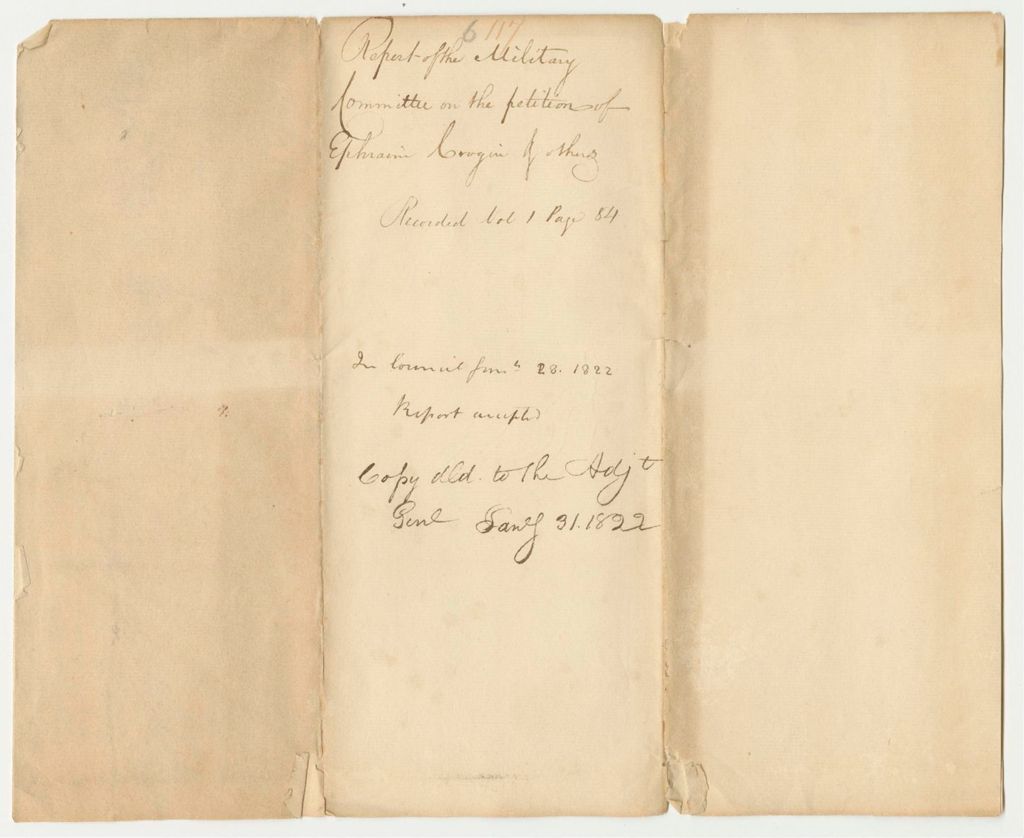 6 117
Report of the Military
Committee on the petition of
Ephraim Crogin & others
Recorded Vol 1 Page 84
In Council Jany 28. 1822
Report accepted
Copy dld. to the Adjt
Genl Jany 31. 1822